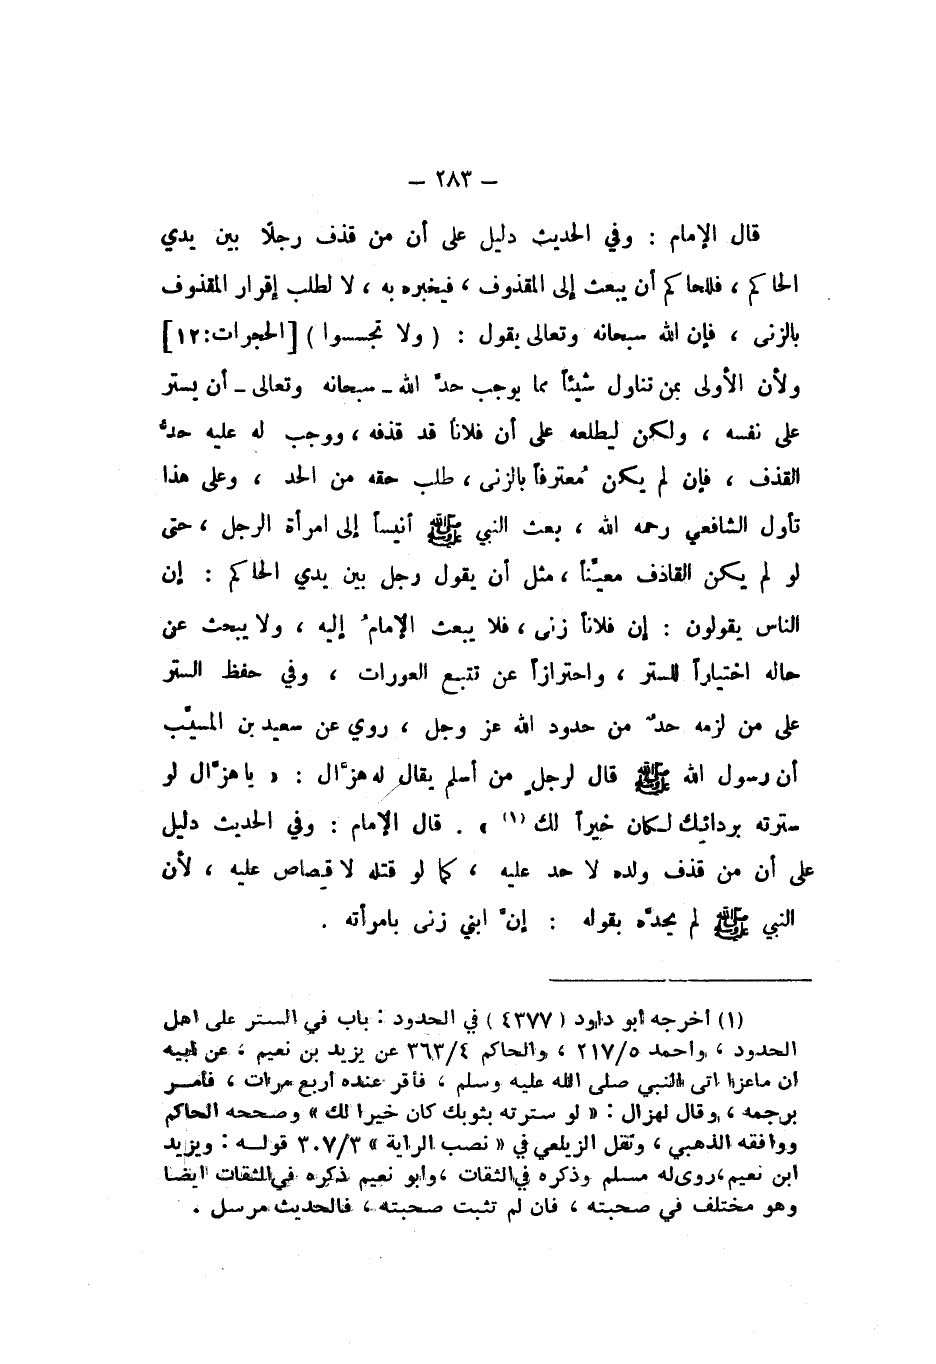 – ٢٨٣ –
قال الإمام : وفي الحديث دليل على أن من قذف رجلًا بين يدي
الحاكم ، فللحاكم أن يبعث إلى المقذوف ، فيخبره به ، لا لطلب إقرار المقذوف
بالزنى ، فإن الله سبحانه وتعالى يقول : ( ولا تجسسوا ) [الحجرات:١٢]
ولأن الأولى بمن تناول شيئاً مما يوجب حدَّ الله ـ سبحانه وتعالى ـ أن يستر
على نفسه ، ولكن ليطلعه على أن فلاناً قد قذفه ، ووجب له عليه حدُّ
القذف ، فإن لم يكن مُعترفاً بالزنى ، طلب حقه من الحد ، وعلى هذا
تأول الشافعي رحمه الله ، بعث النبي ﷺ أنيساً إلى امرأة الرجل ، حتى
لو لم يكن القاذف معيَّناً ، مثل أن يقول رجل بين يدي الحاكم : إن
الناس يقولون : إن فلاناً زنى ، فلا يبعث الإمامُ إليه ، ولا يبحث عن
حاله اختياراً للستر ، واحترازاً عن تتبع العورات ، وفي حفظ الستر
على من لزمه حدٌّ من حدود الله عز وجل ، روي عن سعيد بن المسيَّب
أن رسول الله ﷺ قال لرجلٍ من أسلم يقال له هزَّال : « يا هزَّال لو
سترته بردائك لكان خيراً لك (١) » . قال الإمام : وفي الحديث دليل
على أن من قذف ولده لا حد عليه ، كما لو قتله لا قصاص عليه ، لأن
النبي ﷺ لم يحدَّه بقوله : إنَّ ابني زنى بامرأته .
(١) أخرجه أبو داود ( ٤٣٧٧ ) في الحدود : باب في الستر على اهل
الحدود ، وأحمد ٢١٧/٥ ، والحاكم ٣٦٣/٤ عن يزيد بن نعيم ، عن أبيه
ان ماعزا اتى النبي صلى الله عليه وسلم ، فأقر عنده أربع مرات ، فأمر
برجمه ، وقال لهزال : « لو سترته بثوبك كان خيرا لك » وصححه الحاكم
ووافقه الذهبي ، ونقل الزيلعي في « نصب الراية » ٣٠٧/٣ قوله : ويزيد
ابن نعيم، روى له مسلم وذكره في الثقات ، وأبو نعيم ذكره في الثقات ايضا
وهو مختلف في صحبته ، فان لم تثبت صحبته ، فالحديث مرسل .